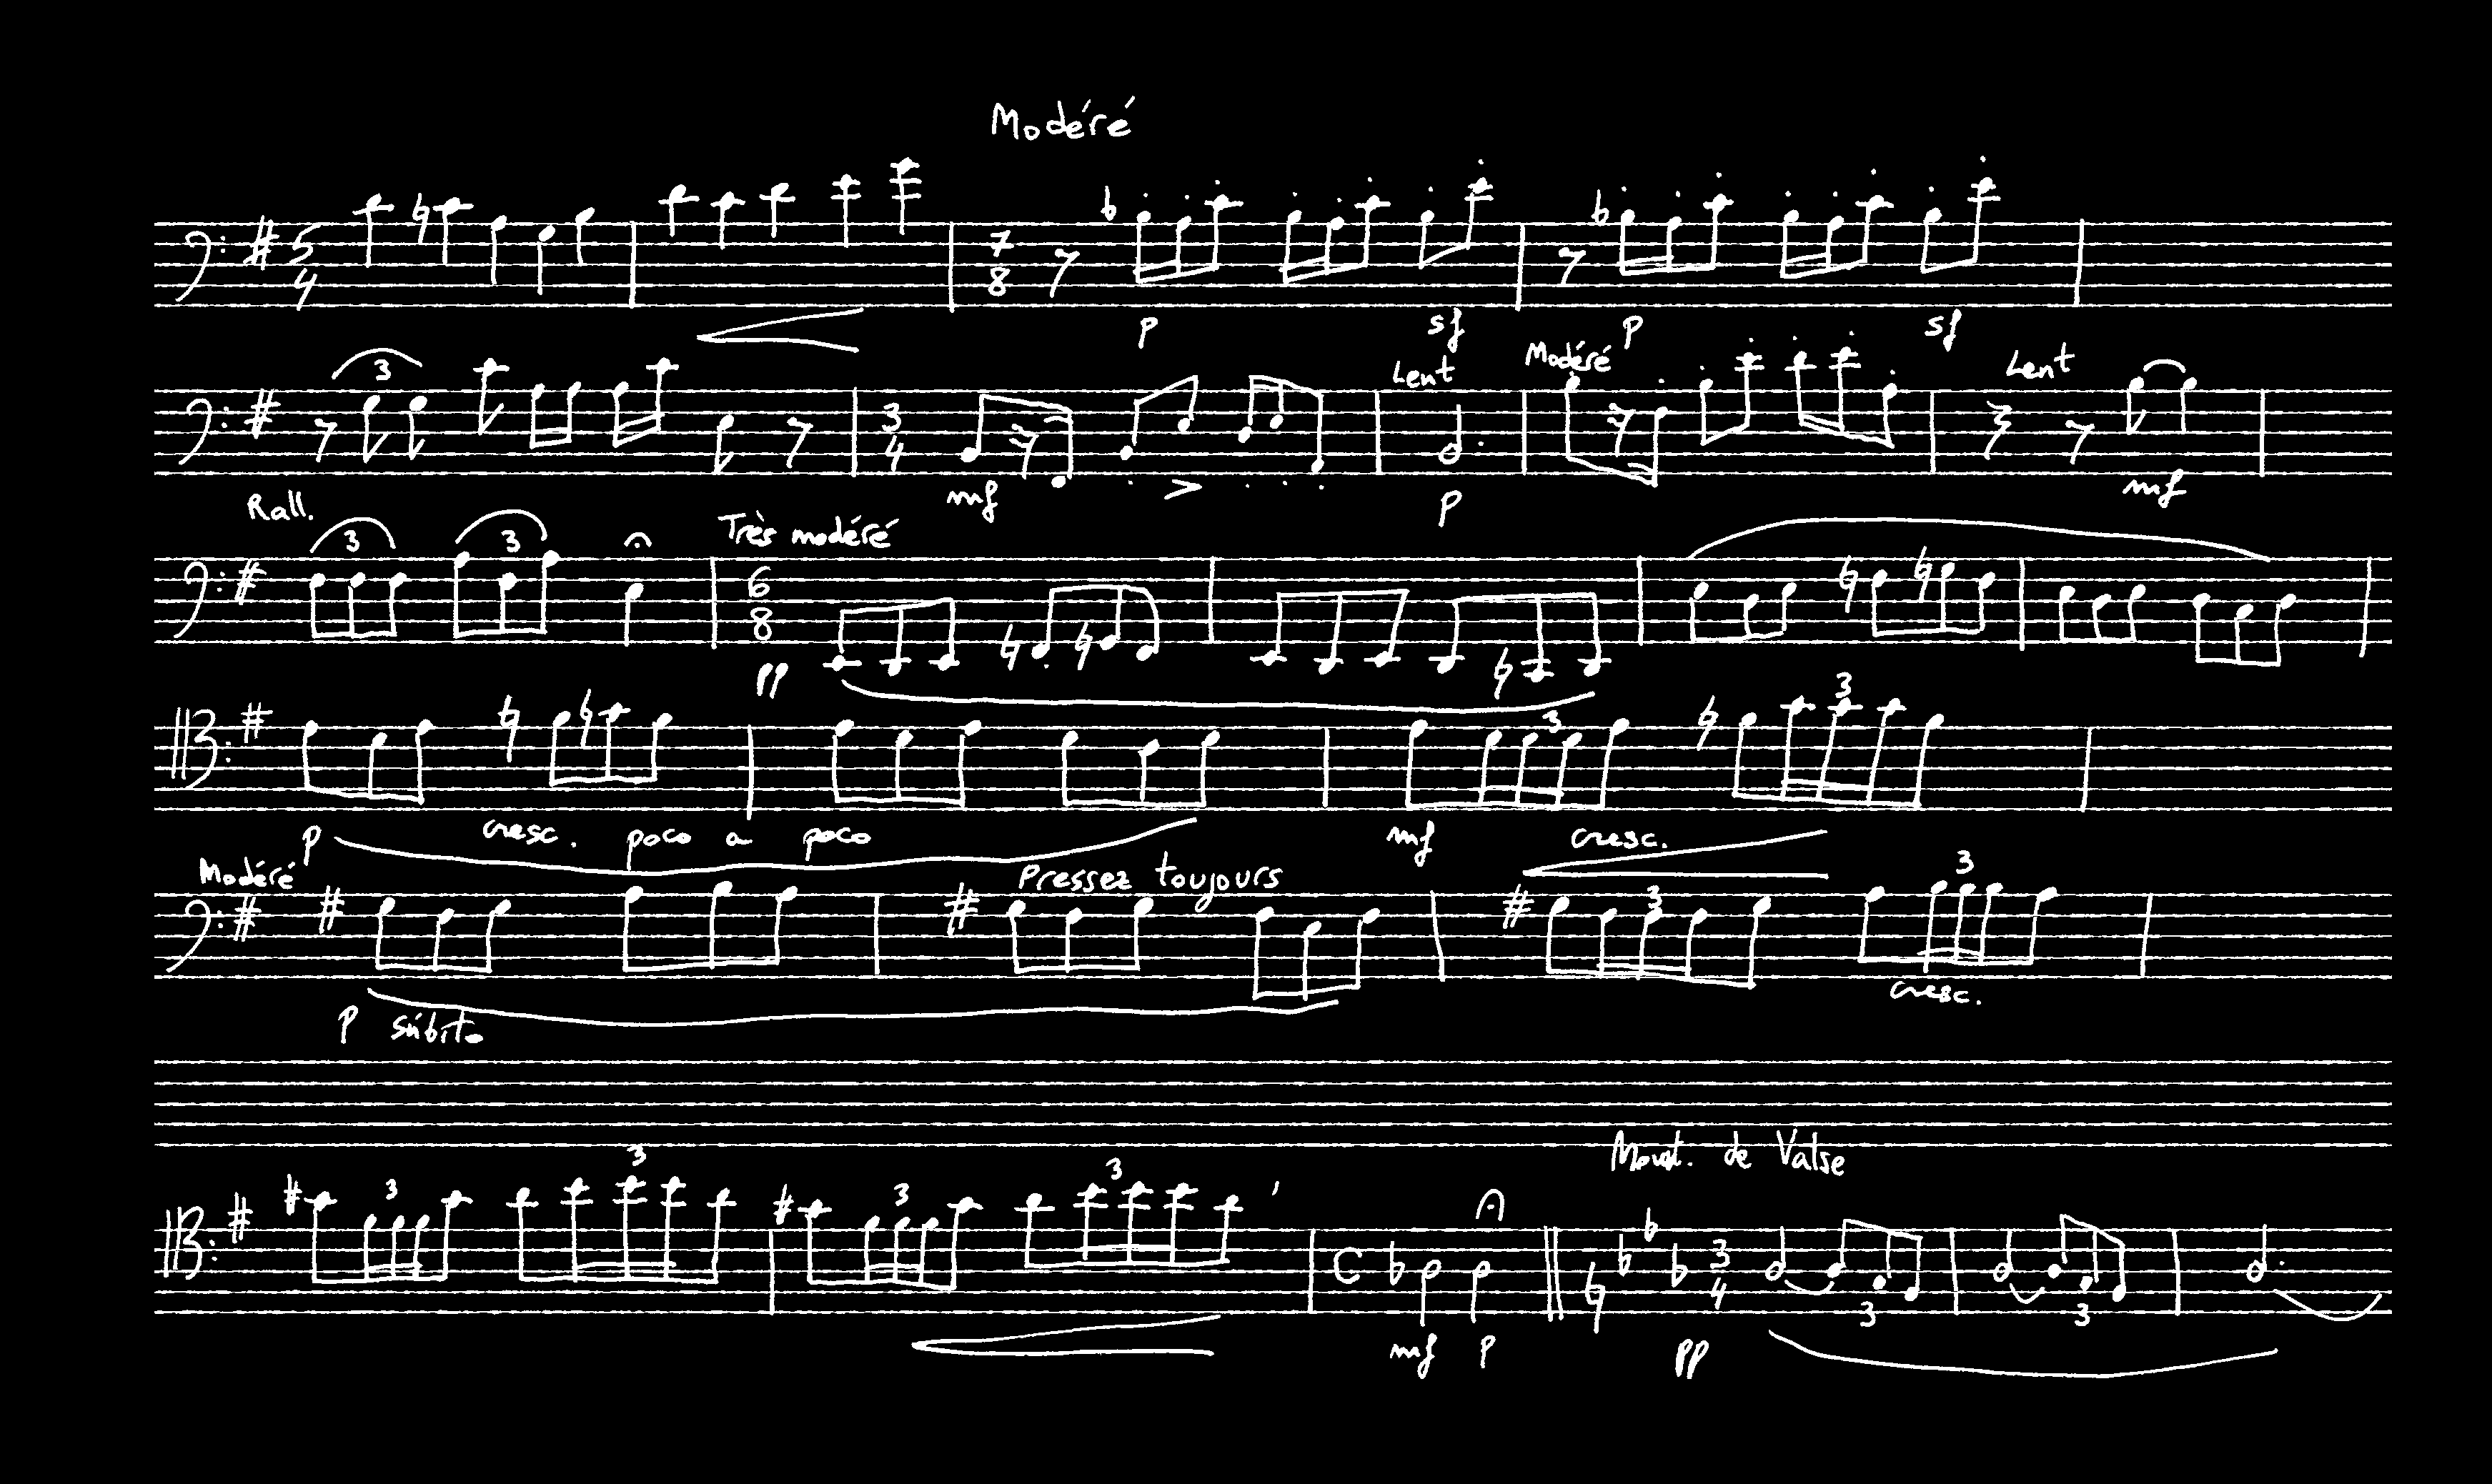 Modéré
5 4 7 8
p sf p sf
3 Lent Modéré Lent
3 4
mf p mf
Rall. 3 3 Très modéré
6 8
pp
3 3
p cresc. poco a poco mf cresc.
Modéré Pressez toujours 3 3
cresc.
p súbito
Mouvt. de Valse
3 3 3 3
C 3 4
3 3
mf p pp